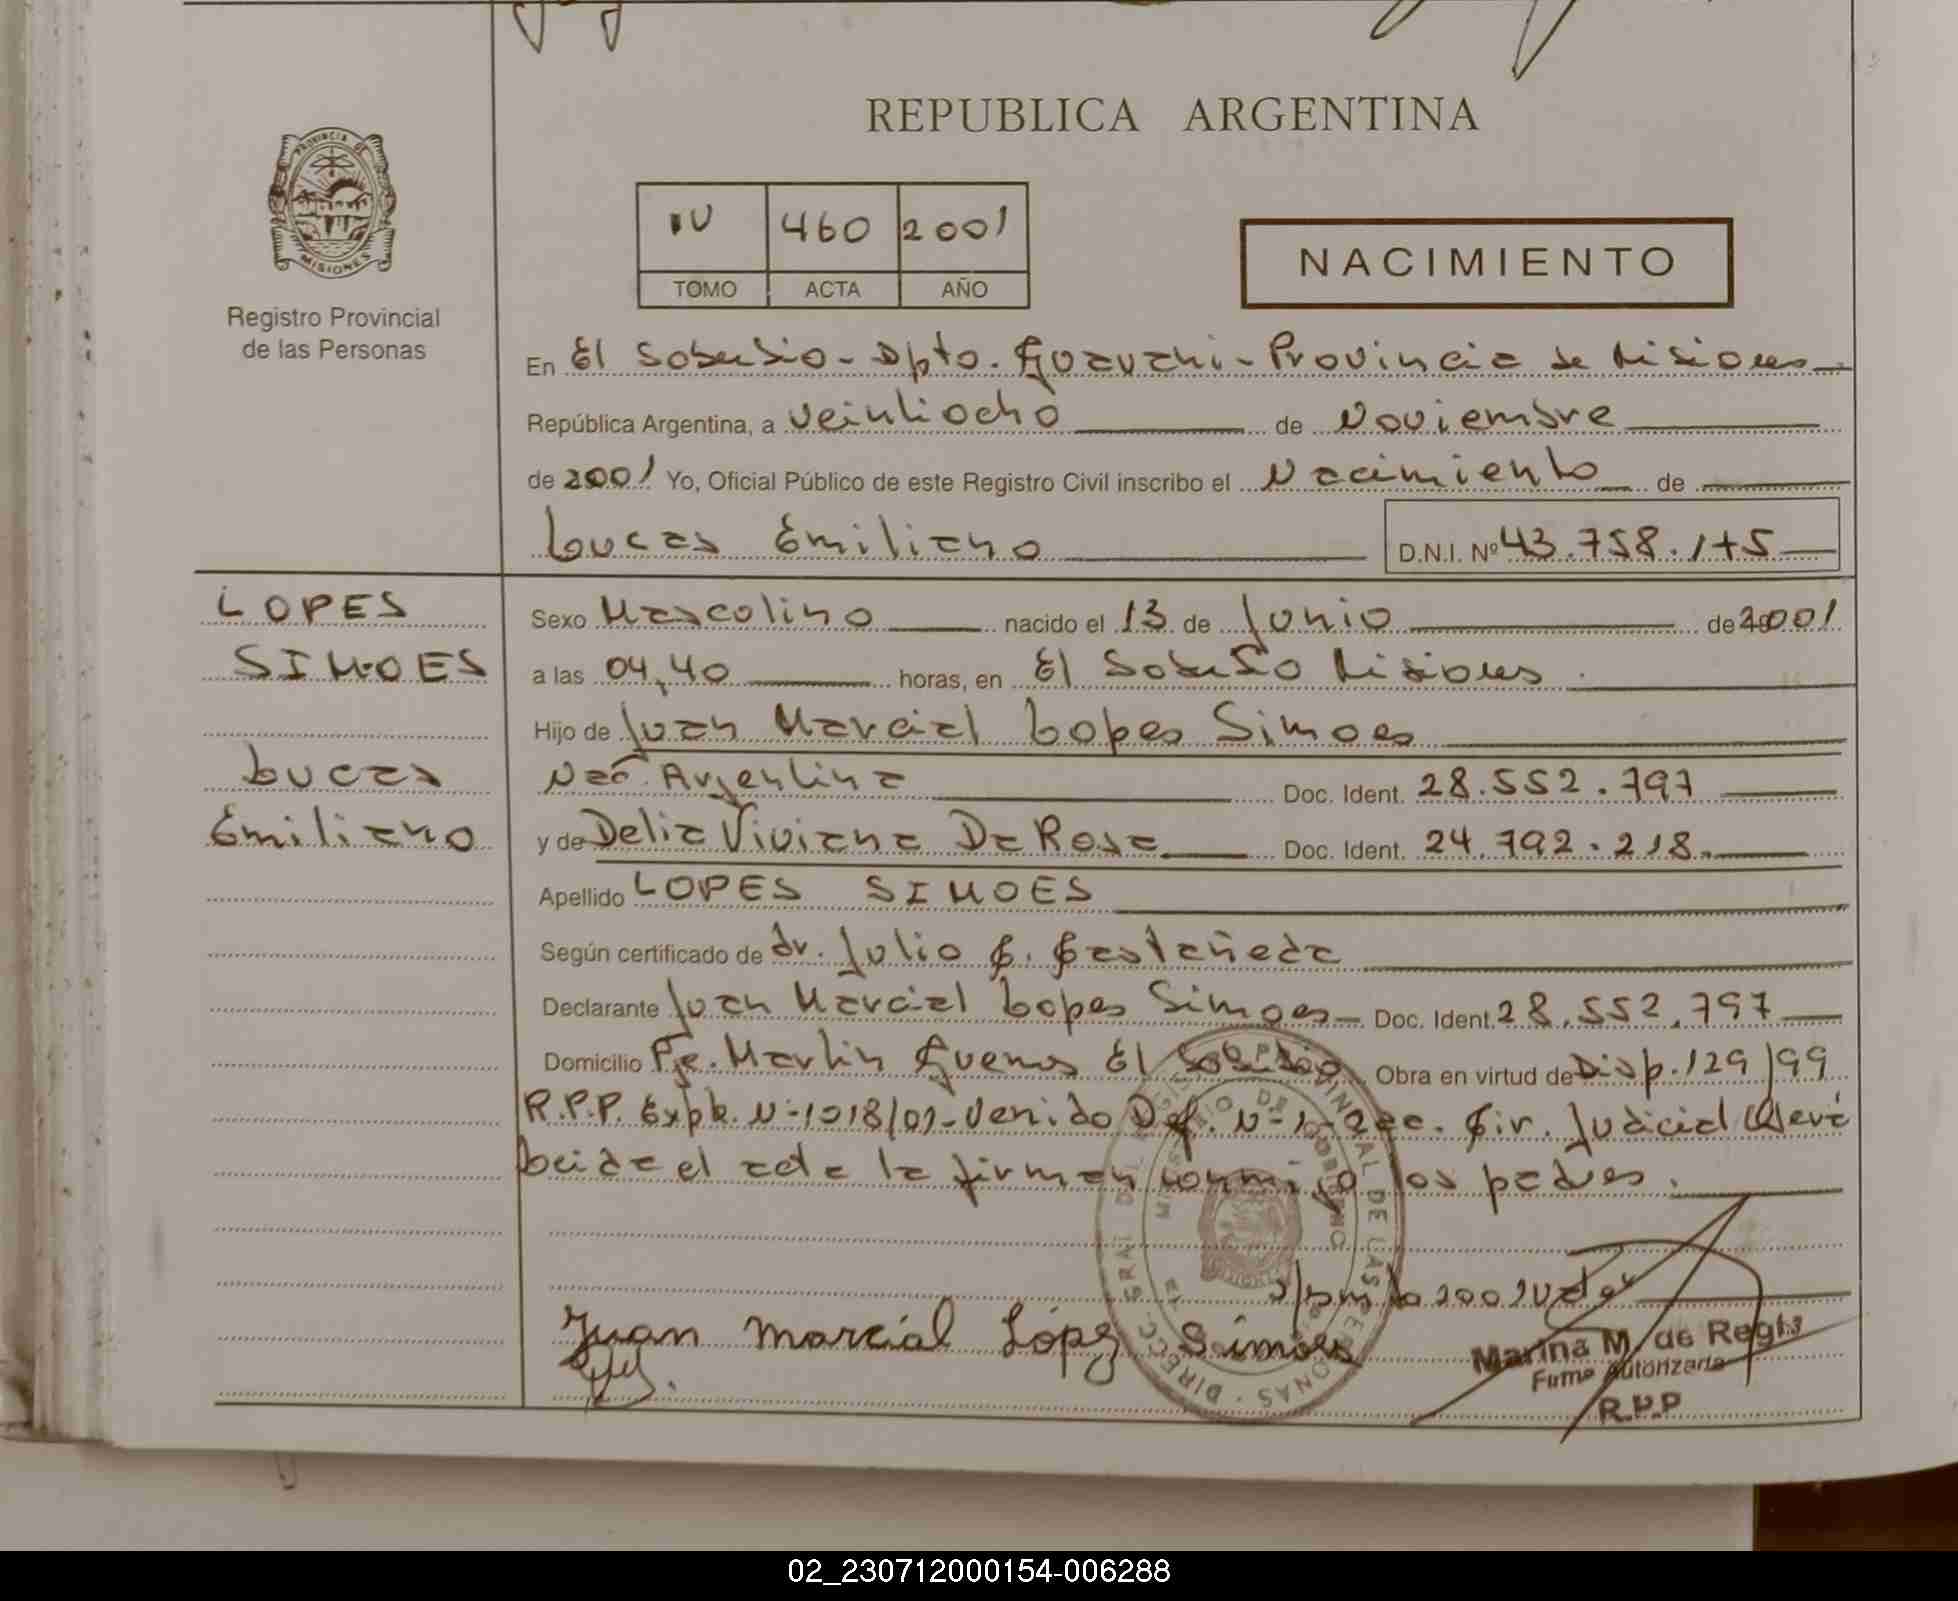 REPUBLICA ARGENTINA
PROVINCIA DE
MISIONES
Registro Provincial
de las Personas
IV 460 2001
TOMO ACTA AÑO
NACIMIENTO
En El Soberbio - Dpto. Guarani - Provincia de Misiones
República Argentina, a veintiocho de Noviembre
de 2001 Yo, Oficial Público de este Registro Civil inscribo el Nacimiento de
Lucas Emiliano D.N.I. Nº 43.758.175
LOPES
SIMOES
Lucas
Emiliano
Sexo Masculino nacido el 13 de Junio de 2001
a las 04,40 horas, en El Soberbio Misiones.
Hijo de Juan Marcial Lopes Simoes
Nac. Argentina Doc. Ident. 28.552.797
y de Delia Viviana Da Rosa Doc. Ident. 24.792.218.
Apellido LOPES SIMOES
Según certificado de dr. Julio C. Castañeda
Declarante Juan Marcial Lopes Simoes Doc. Ident. 28.552.797
Domicilio Pje. Martin Guemes El Soberbio Obra en virtud de Disp. 129/99
R.P.P. Expte. Nº 1018/01 - Venido Def. Nº 1 - 2da. Cir. Judicial
Leida el acta la firman conmigo los padres.
Juan Marcial López Simoes
Marina M. de Regis
Firma Autorizada
R.P.P
02_230712000154-006288